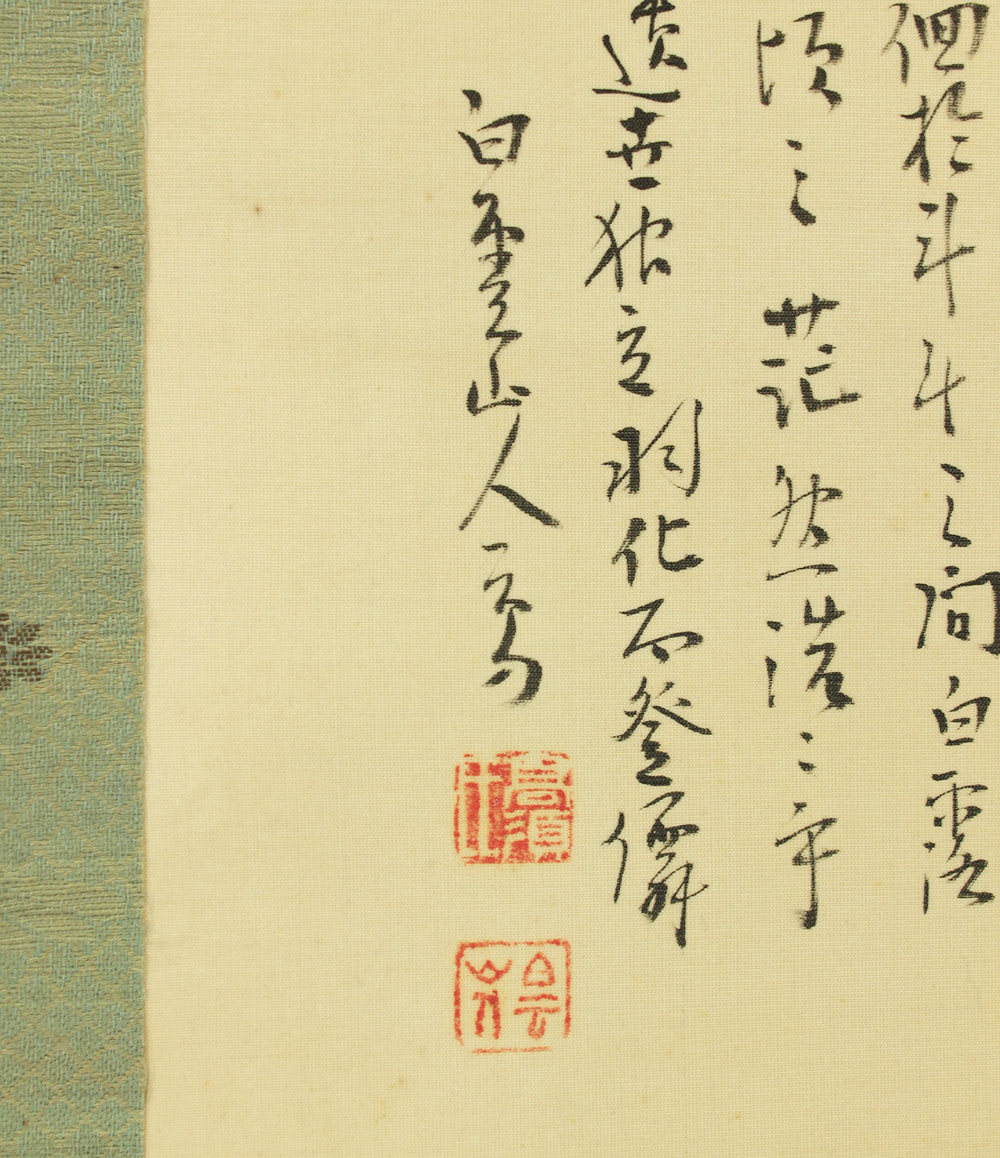 佪於斗牛之間白露
頃之茫然浩々乎
遺世独立羽化而登僊
白雲山人
白雲